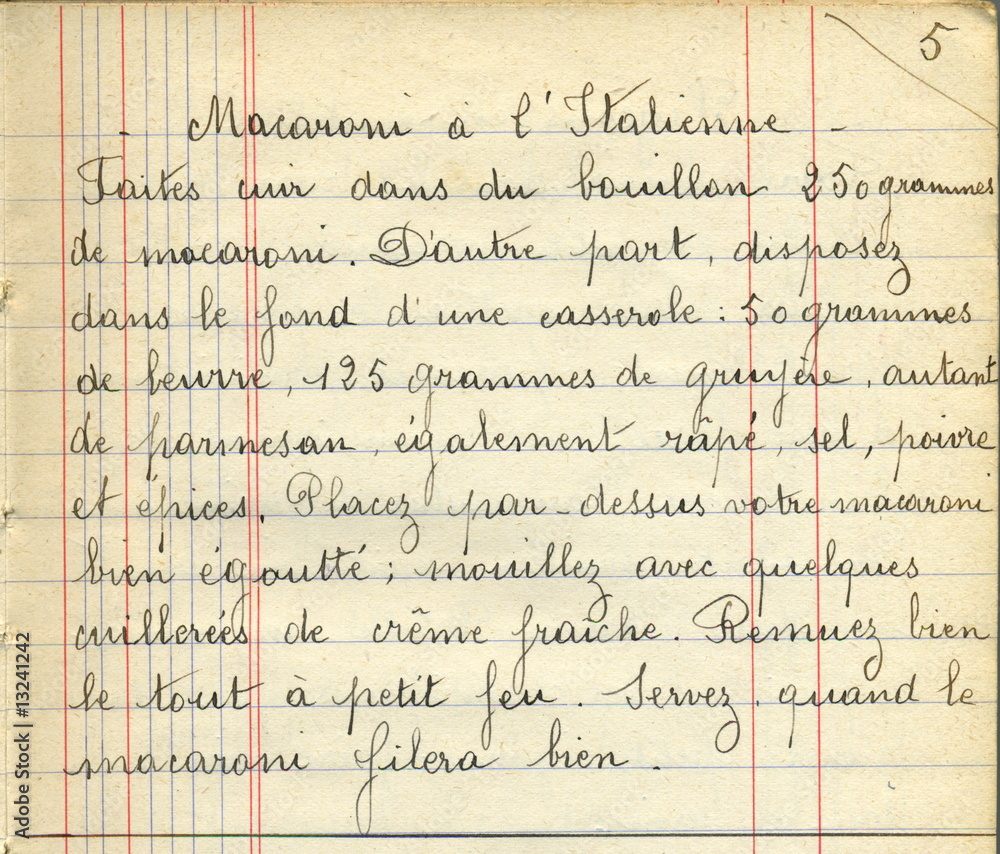 5
- Macaroni à l'Italienne -
Faites cuir dans du bouillon 250 grammes
de macaroni. D'autre part, disposez
dans le fond d'une casserole : 50 grammes
de beurre, 125 grammes de gruyère, autant
de parmesan, également râpé, sel, poivre
et épices. Placez par-dessus votre macaroni
bien égoutté ; mouillez avec quelques
cuillereés de crême fraîche. Remuez bien
le tout à petit feu. Servez quand le
macaroni filera bien.
Adobe Stock | #13241242